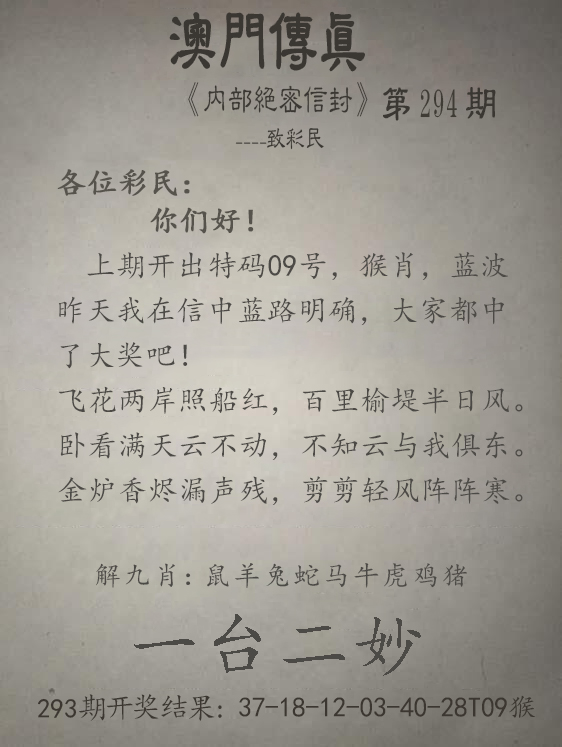 澳門傳眞
《内部絕密信封》第294期
----致彩民
各位彩民：
你们好！
上期开出特码09号，猴肖，蓝波
昨天我在信中蓝路明确，大家都中
了大奖吧！
飞花两岸照船红，百里榆堤半日风。
卧看满天云不动，不知云与我俱东。
金炉香烬漏声残，剪剪轻风阵阵寒。
解九肖：鼠羊兔蛇马牛虎鸡猪
一台二妙
293期开奖结果：37-18-12-03-40-28T09猴